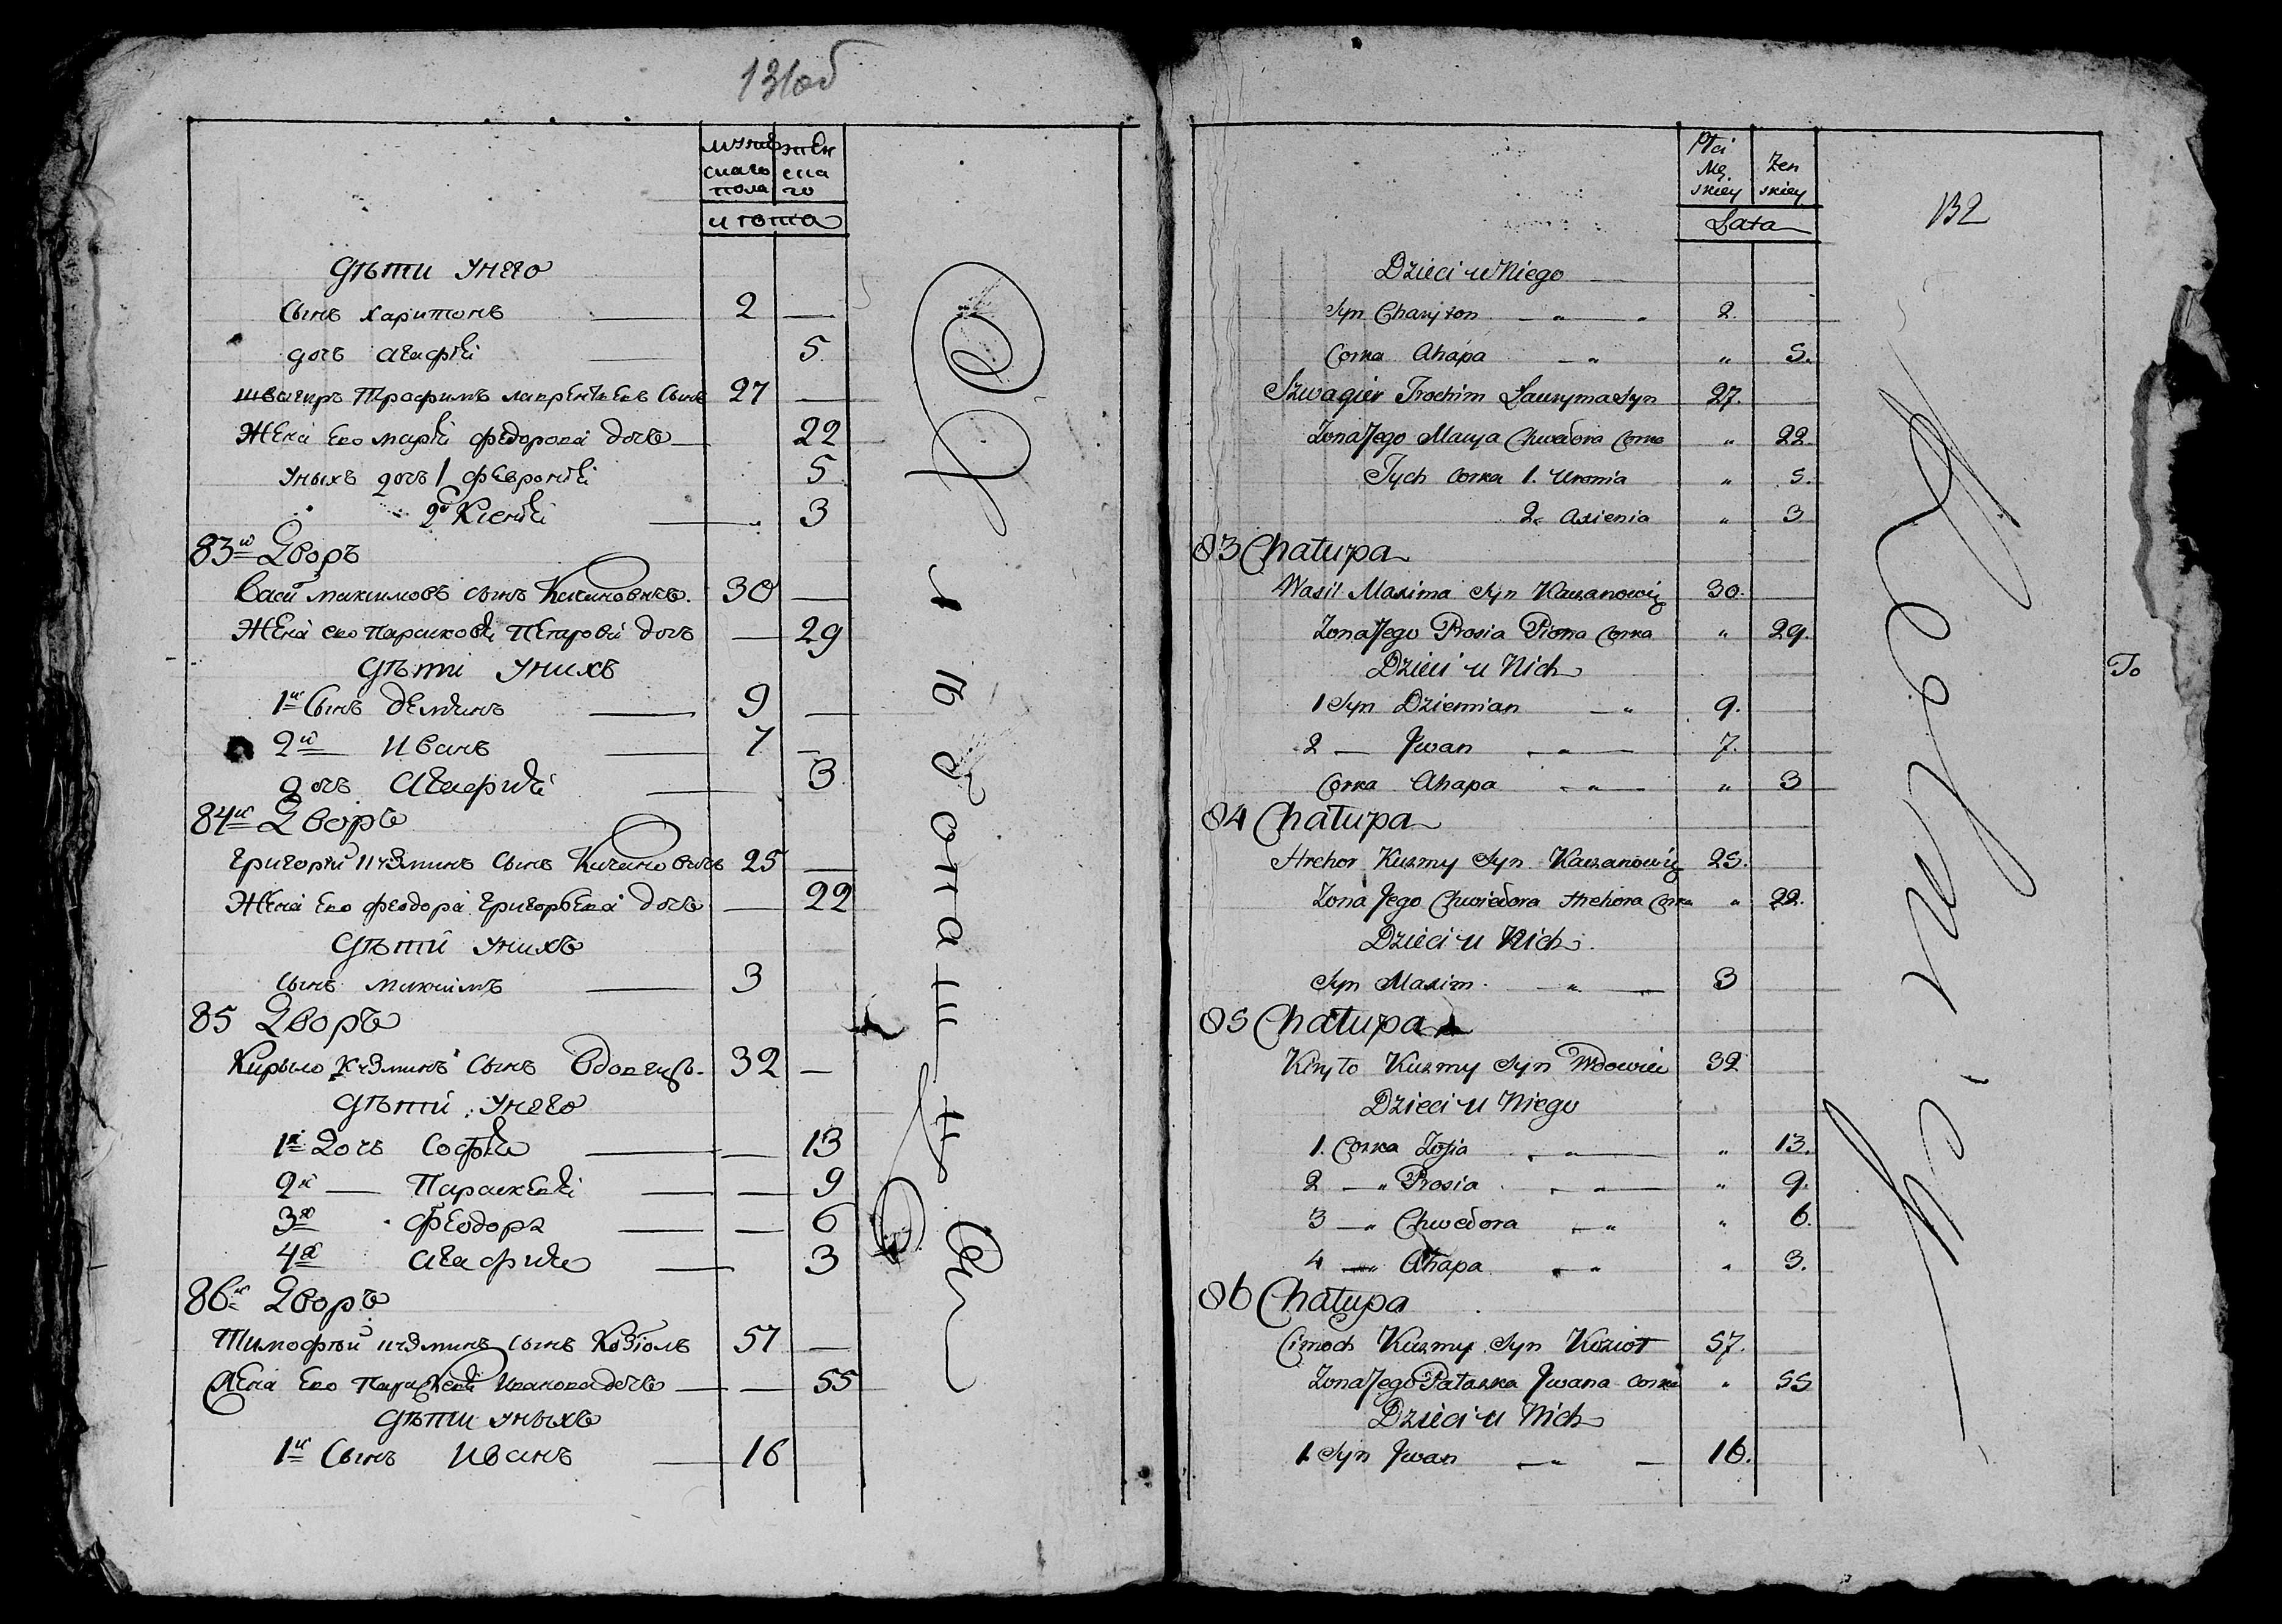 131об
мужескаго пола
женскаго
и лета
Дѣти у него
Сынъ Харитонъ 2 —
дочь Агафiя 5
швагиръ Трафимъ Лаврентьевъ Сынъ 27 —
Жена его марiя федорова дочь — 22
у ныхъ дочь 1 февронiя 5
2я Ксенiя — 3
83й Дворъ
Васи максимовъ сынъ 30 —
Жена его парасковiя Петрова дочь — 29
Дѣти у нихъ
1й Сынъ демiянъ — 9 —
2й — Иванъ — 7 —
дочь Агафiя — 3
84й Дворъ
Григорiй кузминъ Сынъ 25 —
Жена его феодора Григорьева дочь — 22
Дѣти у нихъ
сынъ максимъ — 3
85 Дворъ
Кирыло кузминъ Сынъ Вдовецъ 32 —
Дѣти у него
1я Дочь Софiя — — 13
2я — Параскевiя — — 9
3я феодора — — 6
4я Агафия — 3
86й Дворъ
Тимофѣй кузминъ сынъ Козiолъ 57 —
Жена его Параскевiя Иванова дочь — — 55
Дѣти у ныхъ
1й Сынъ Иванъ — 16
132
Płci Męskiey
Zenskiey
Lata
Dzieci u Niego
Syn Charyton — " — " 2.
Corka Ahapa — " " 5.
Szwagier Trochim Ławryma Syn 27.
Zona Jego Marya Chwedora Corka " 22.
Tych Corka 1. Uronia " 5.
2. Axienia " 3
83 Chałupa
Wasil Maxima Syn 30.
Zona Jego Prosia Piotra Corka " 29.
Dzieci u Nich
1 Syn Dziemian — " 9.
2 — Jwan — " — 7.
Corka Ahapa — " — " 3
84 Chałupa
Hrehor Kuzmy Syn 25.
Zona Jego Chwiedora Hrehora Corka " 22.
Dzieci u Nich
Syn Maxim. — " — 3
85 Chałupa
Kiryło Kuzmy Syn Wdowiec 32
Dzieci u Niego
1. Corka Zofia — " — " 13.
2 — " Prosia — " — " 9.
3 — " Chwedora — " " 6.
4 — " Ahapa — " " 3.
86 Chałupa
Cimoch Kuzmy Syn Kozioł 57.
Zona Jego Pałazka Jwana Corka " 55
Dzieci u Nich
1 Syn Jwan — " — 16.
To